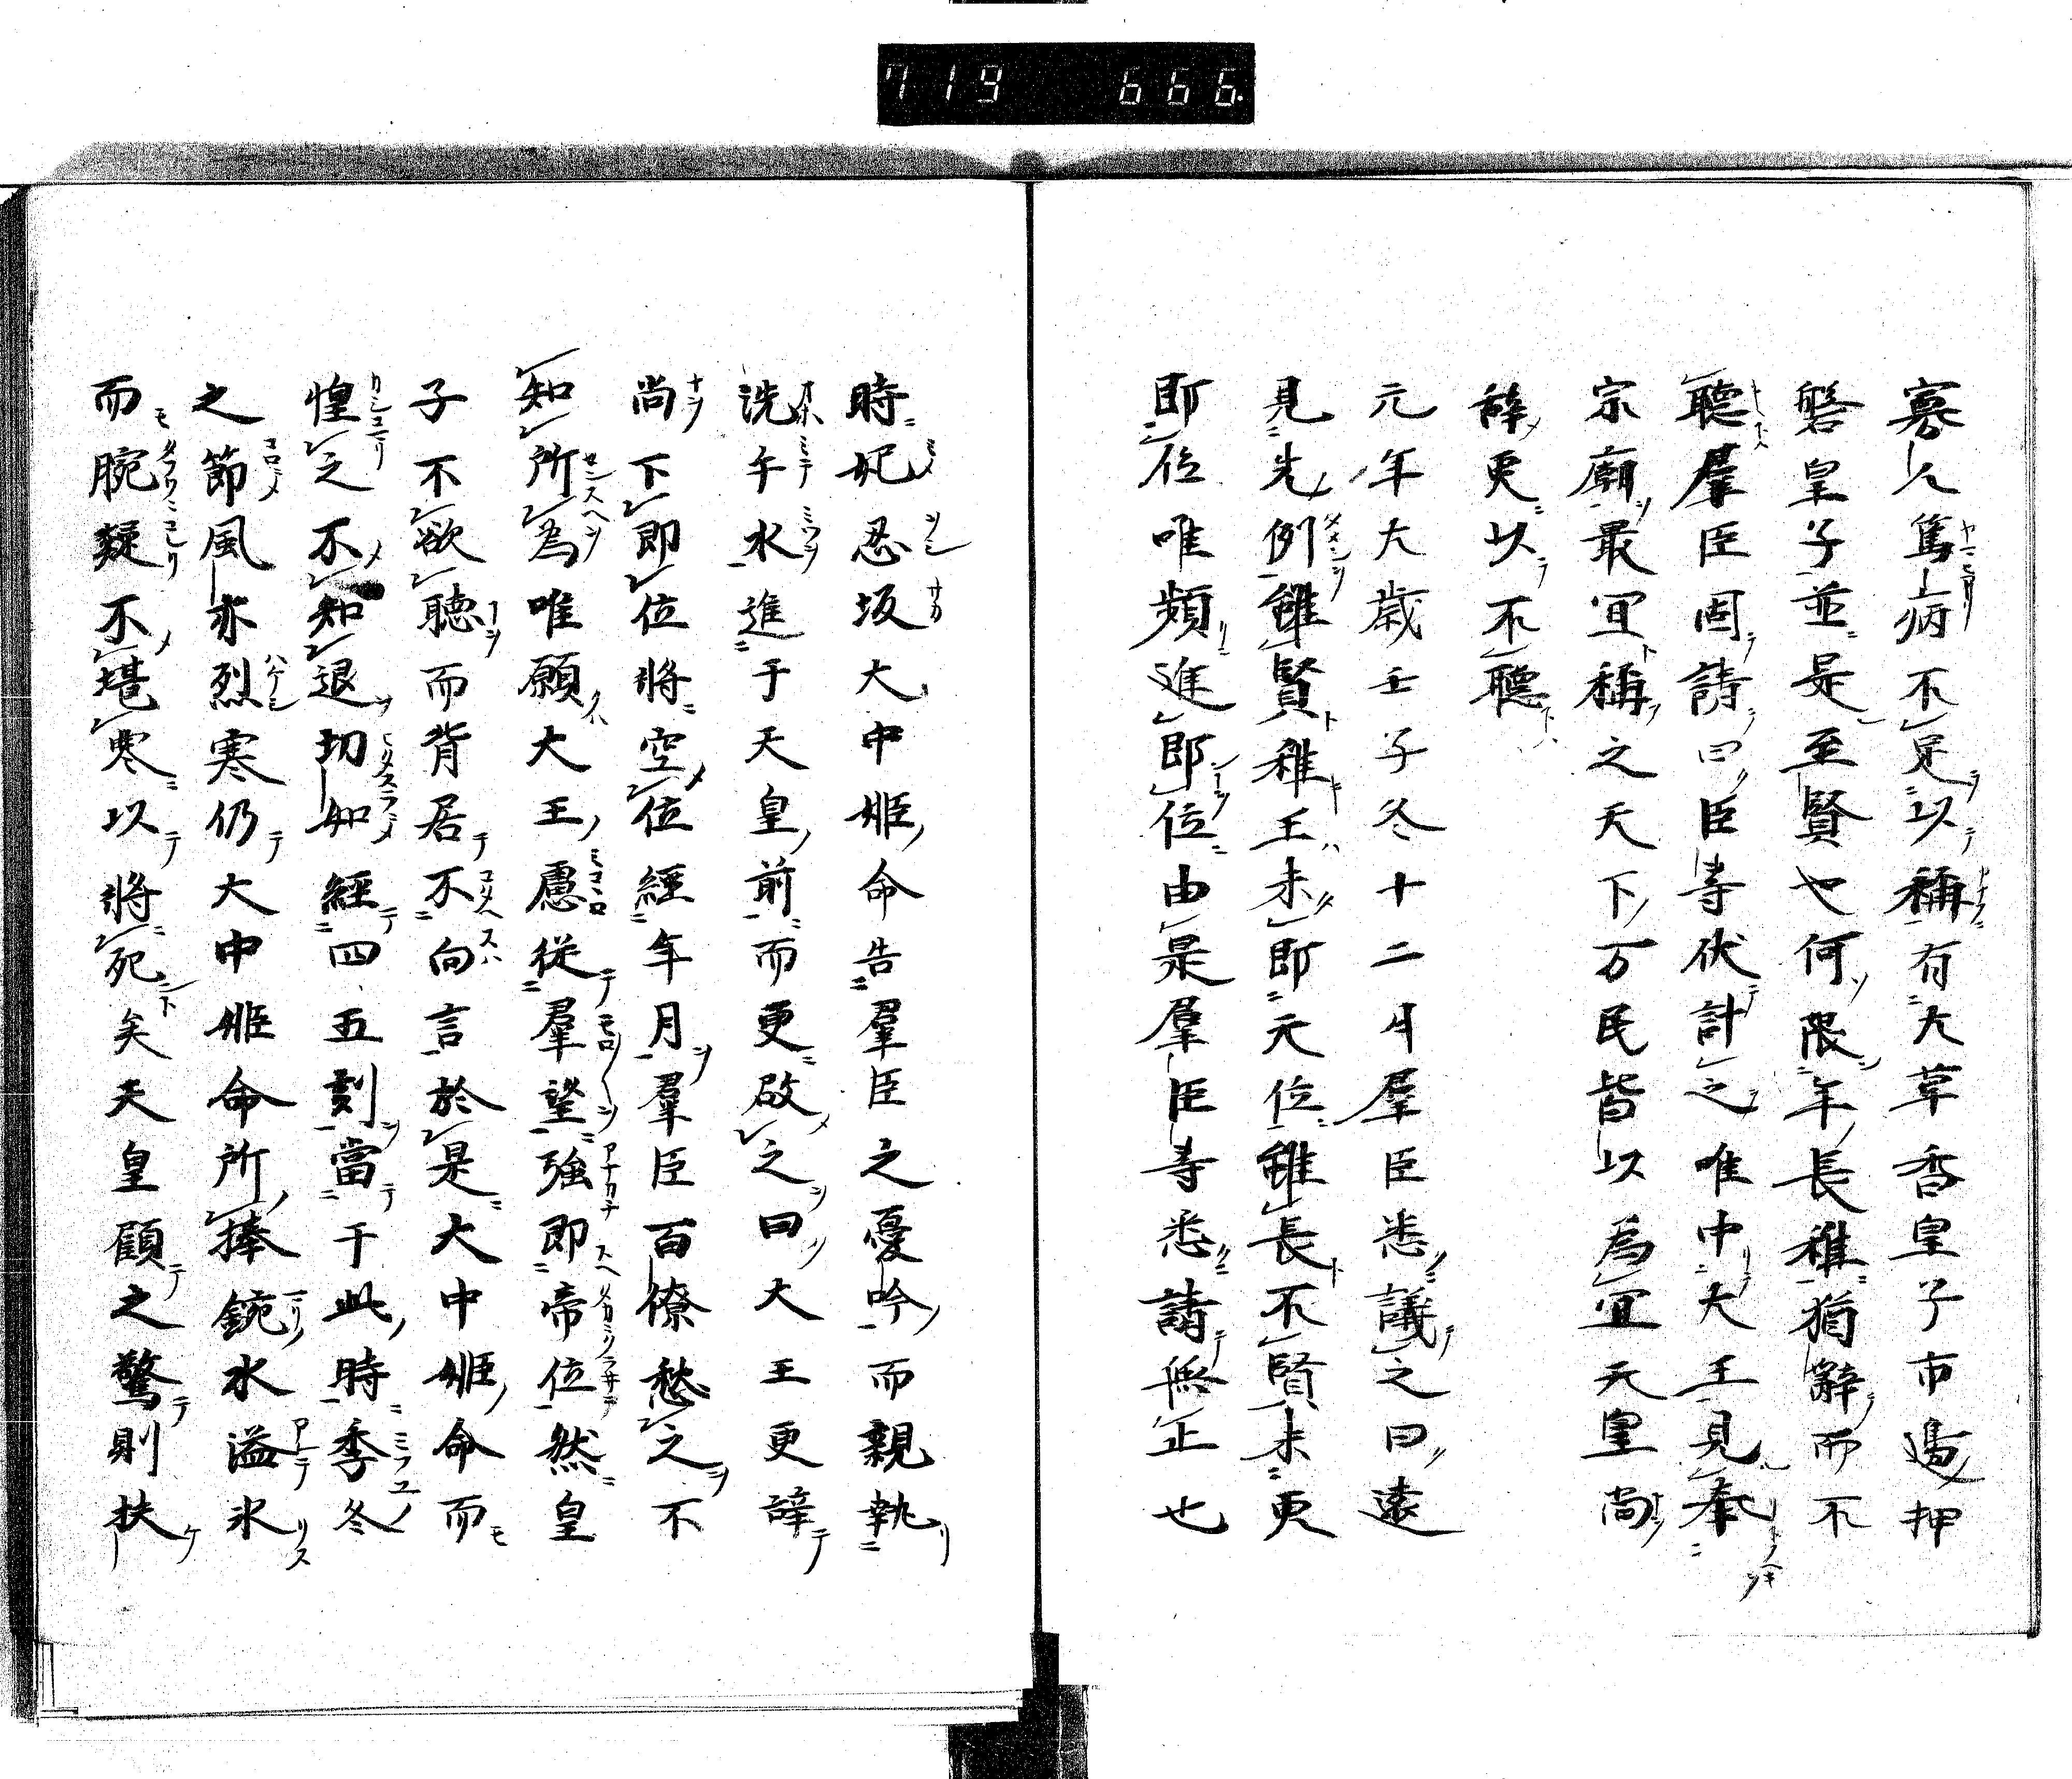 719 666.
寡人篤病不足以稱有大草香皇子市邊押
磐皇子並是至賢也何限年長稚猶辭而不
聽羣臣固請曰臣等伏計之唯中大王見奉
宗廟最宜稱之天下万民皆以為宜天皇尚
辞更以不聽
元年大歳壬子冬十二月羣臣悉議之曰遠
見先例雖賢稚王未即元位雖長不賢未更
即位唯頻進即位由是羣臣等悉請無正也
時妃忍坂大中姫命告羣臣之憂吟而親執
洗手水進于天皇前而更啟之曰大王更辞
尚下即位將空位經年月羣臣百僚愁之不
知所為唯願大王慮従羣望強即帝位然皇
子不欲聽而背居不向言於是大中姫命而
惶之不知退切如經四五刻當于此時季冬
之節風亦烈寒仍大中姫命所捧鋺水溢氷
而腕凝不堪寒以將死矣天皇顧之驚則扶